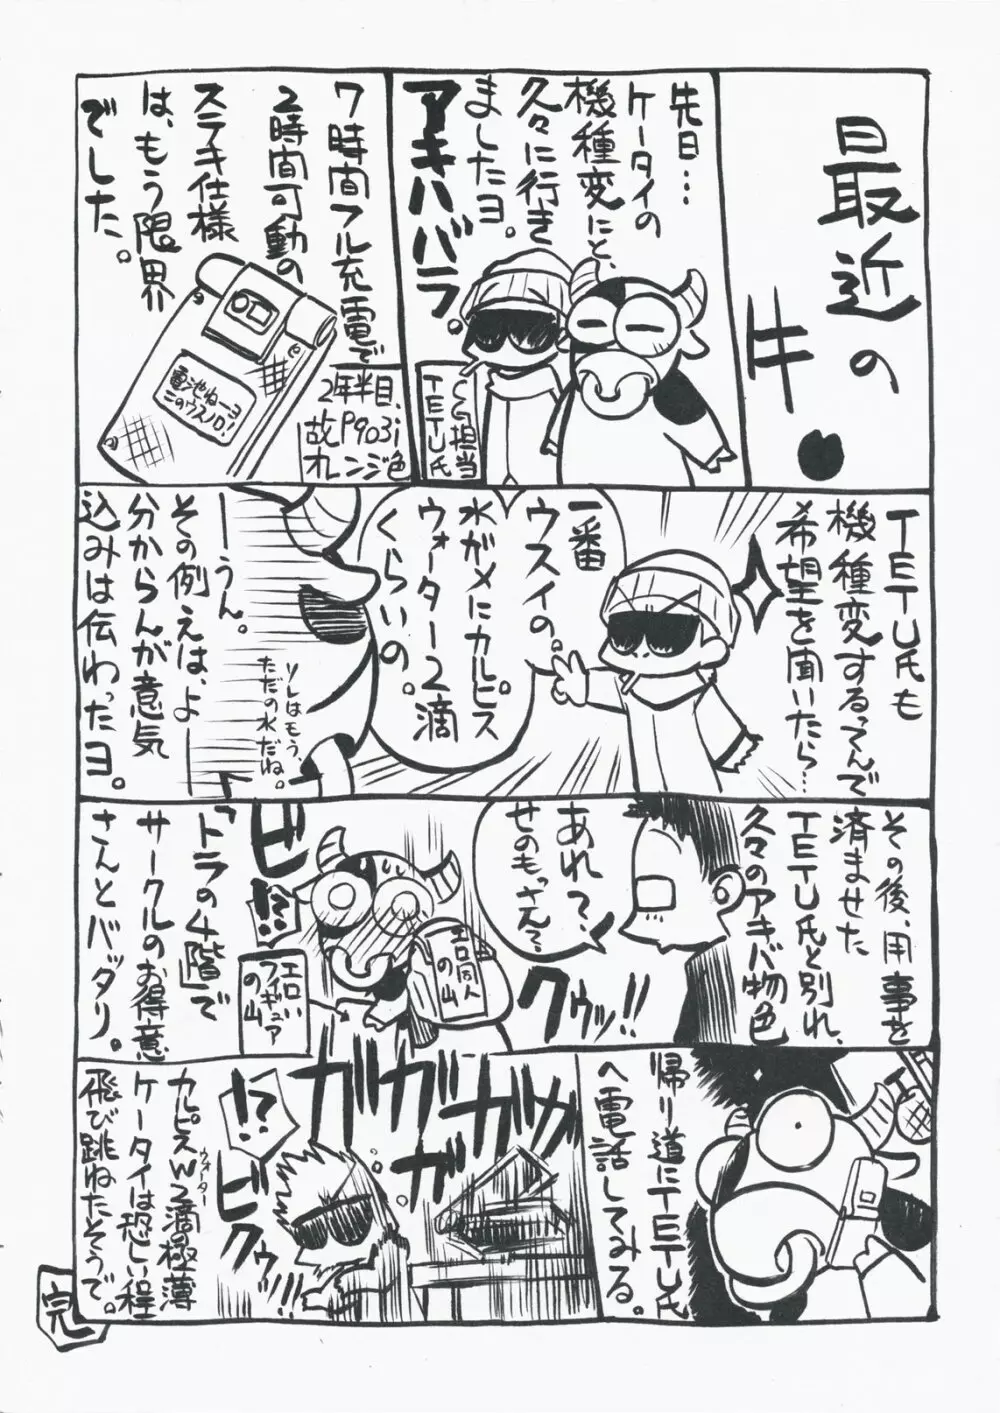 最近の
牛。
先日…
ケータイの
機種変にと、
久々に行き
ましたヨ。
アキハバラ。
CG担当
TETU氏
7時間フル充電で
2時間可動の
ステキ仕様
は、もう限界
でした。
電池ねーヨ
このウスノロ!
2年半目、
故P903i
オレンジ色
TETU氏も
機種変するってんで
希望を聞いたら…
一番
ウスイの。
水ガメにカルピス
ウォーター2滴
くらいの。
ーうん。
その例えは、よー
分からんが意気
込みは伝わったヨ。
ソレはもう、
ただの水だね。
その後、用事を
済ませた
TETU氏と別れ、
久々のアキバ物色
あれ?
せのもっさん?
クゥッ!!
ビ
!?
エロ同人
の山
エロい
フィギュア
の山
「トラの4階」で
サークルのお得意
さんとバッタリ。
帰り道にTETU氏
へ電話してみる。
ガガガガガ
!?
ビクゥッ!!
カルピスW2滴の極薄
ウォーター
ケータイは恐しい程
飛び跳ねたそうで。
完